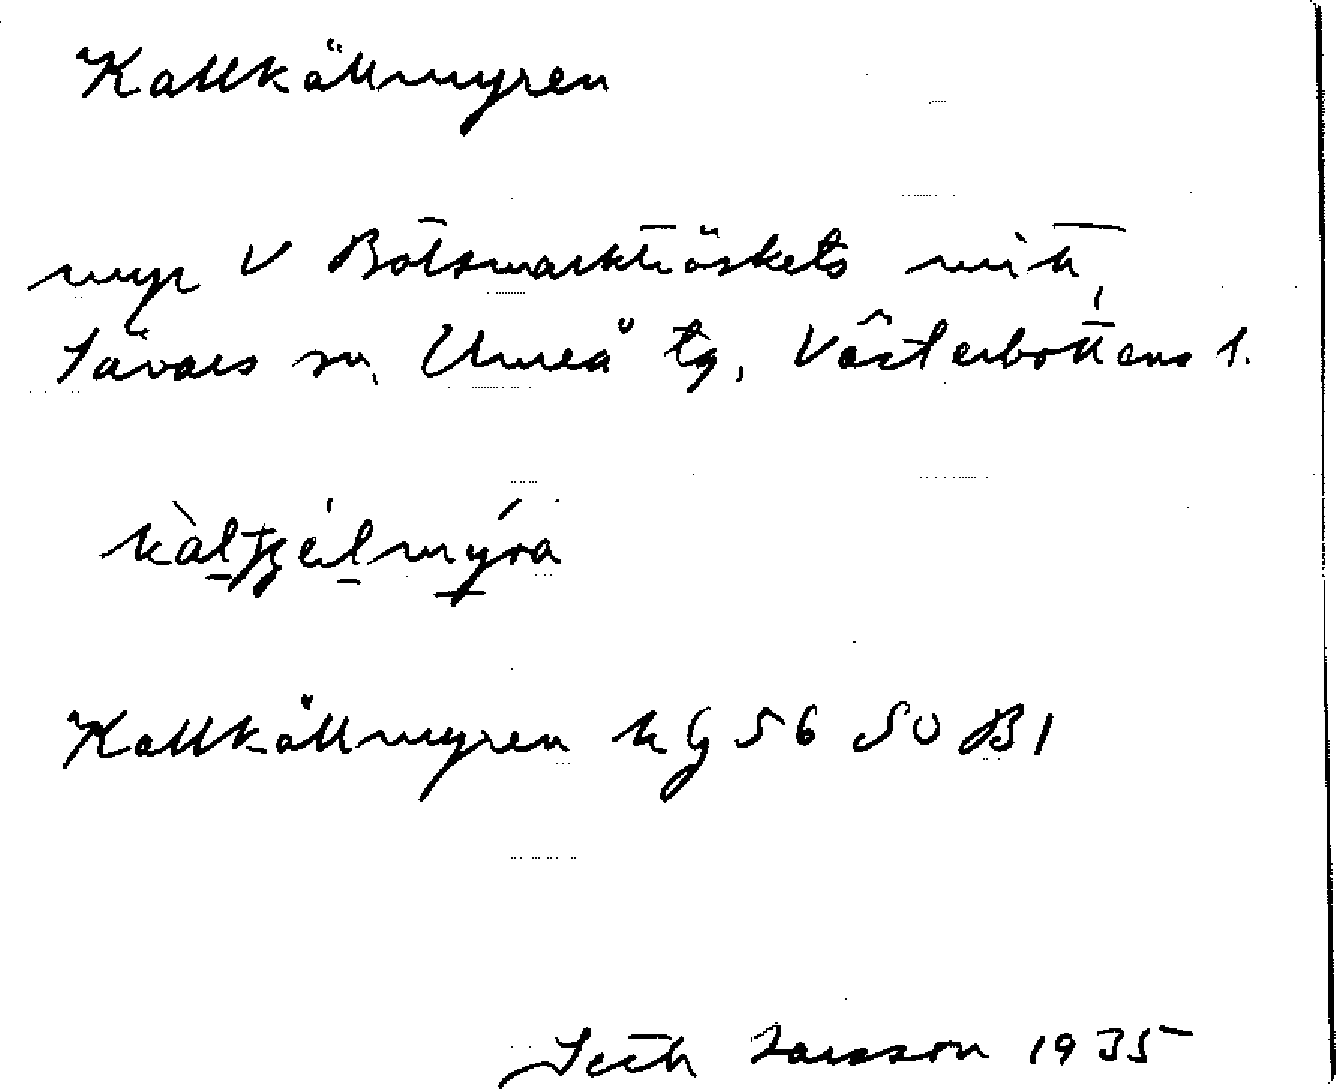 Kallkällmyren
myr V Botsmarkträskets mitt,
Sävars sn, Umeå tg, Västerbottens l.
Kallkällmyren kg 56 SO B1
Seth Larsson 1935